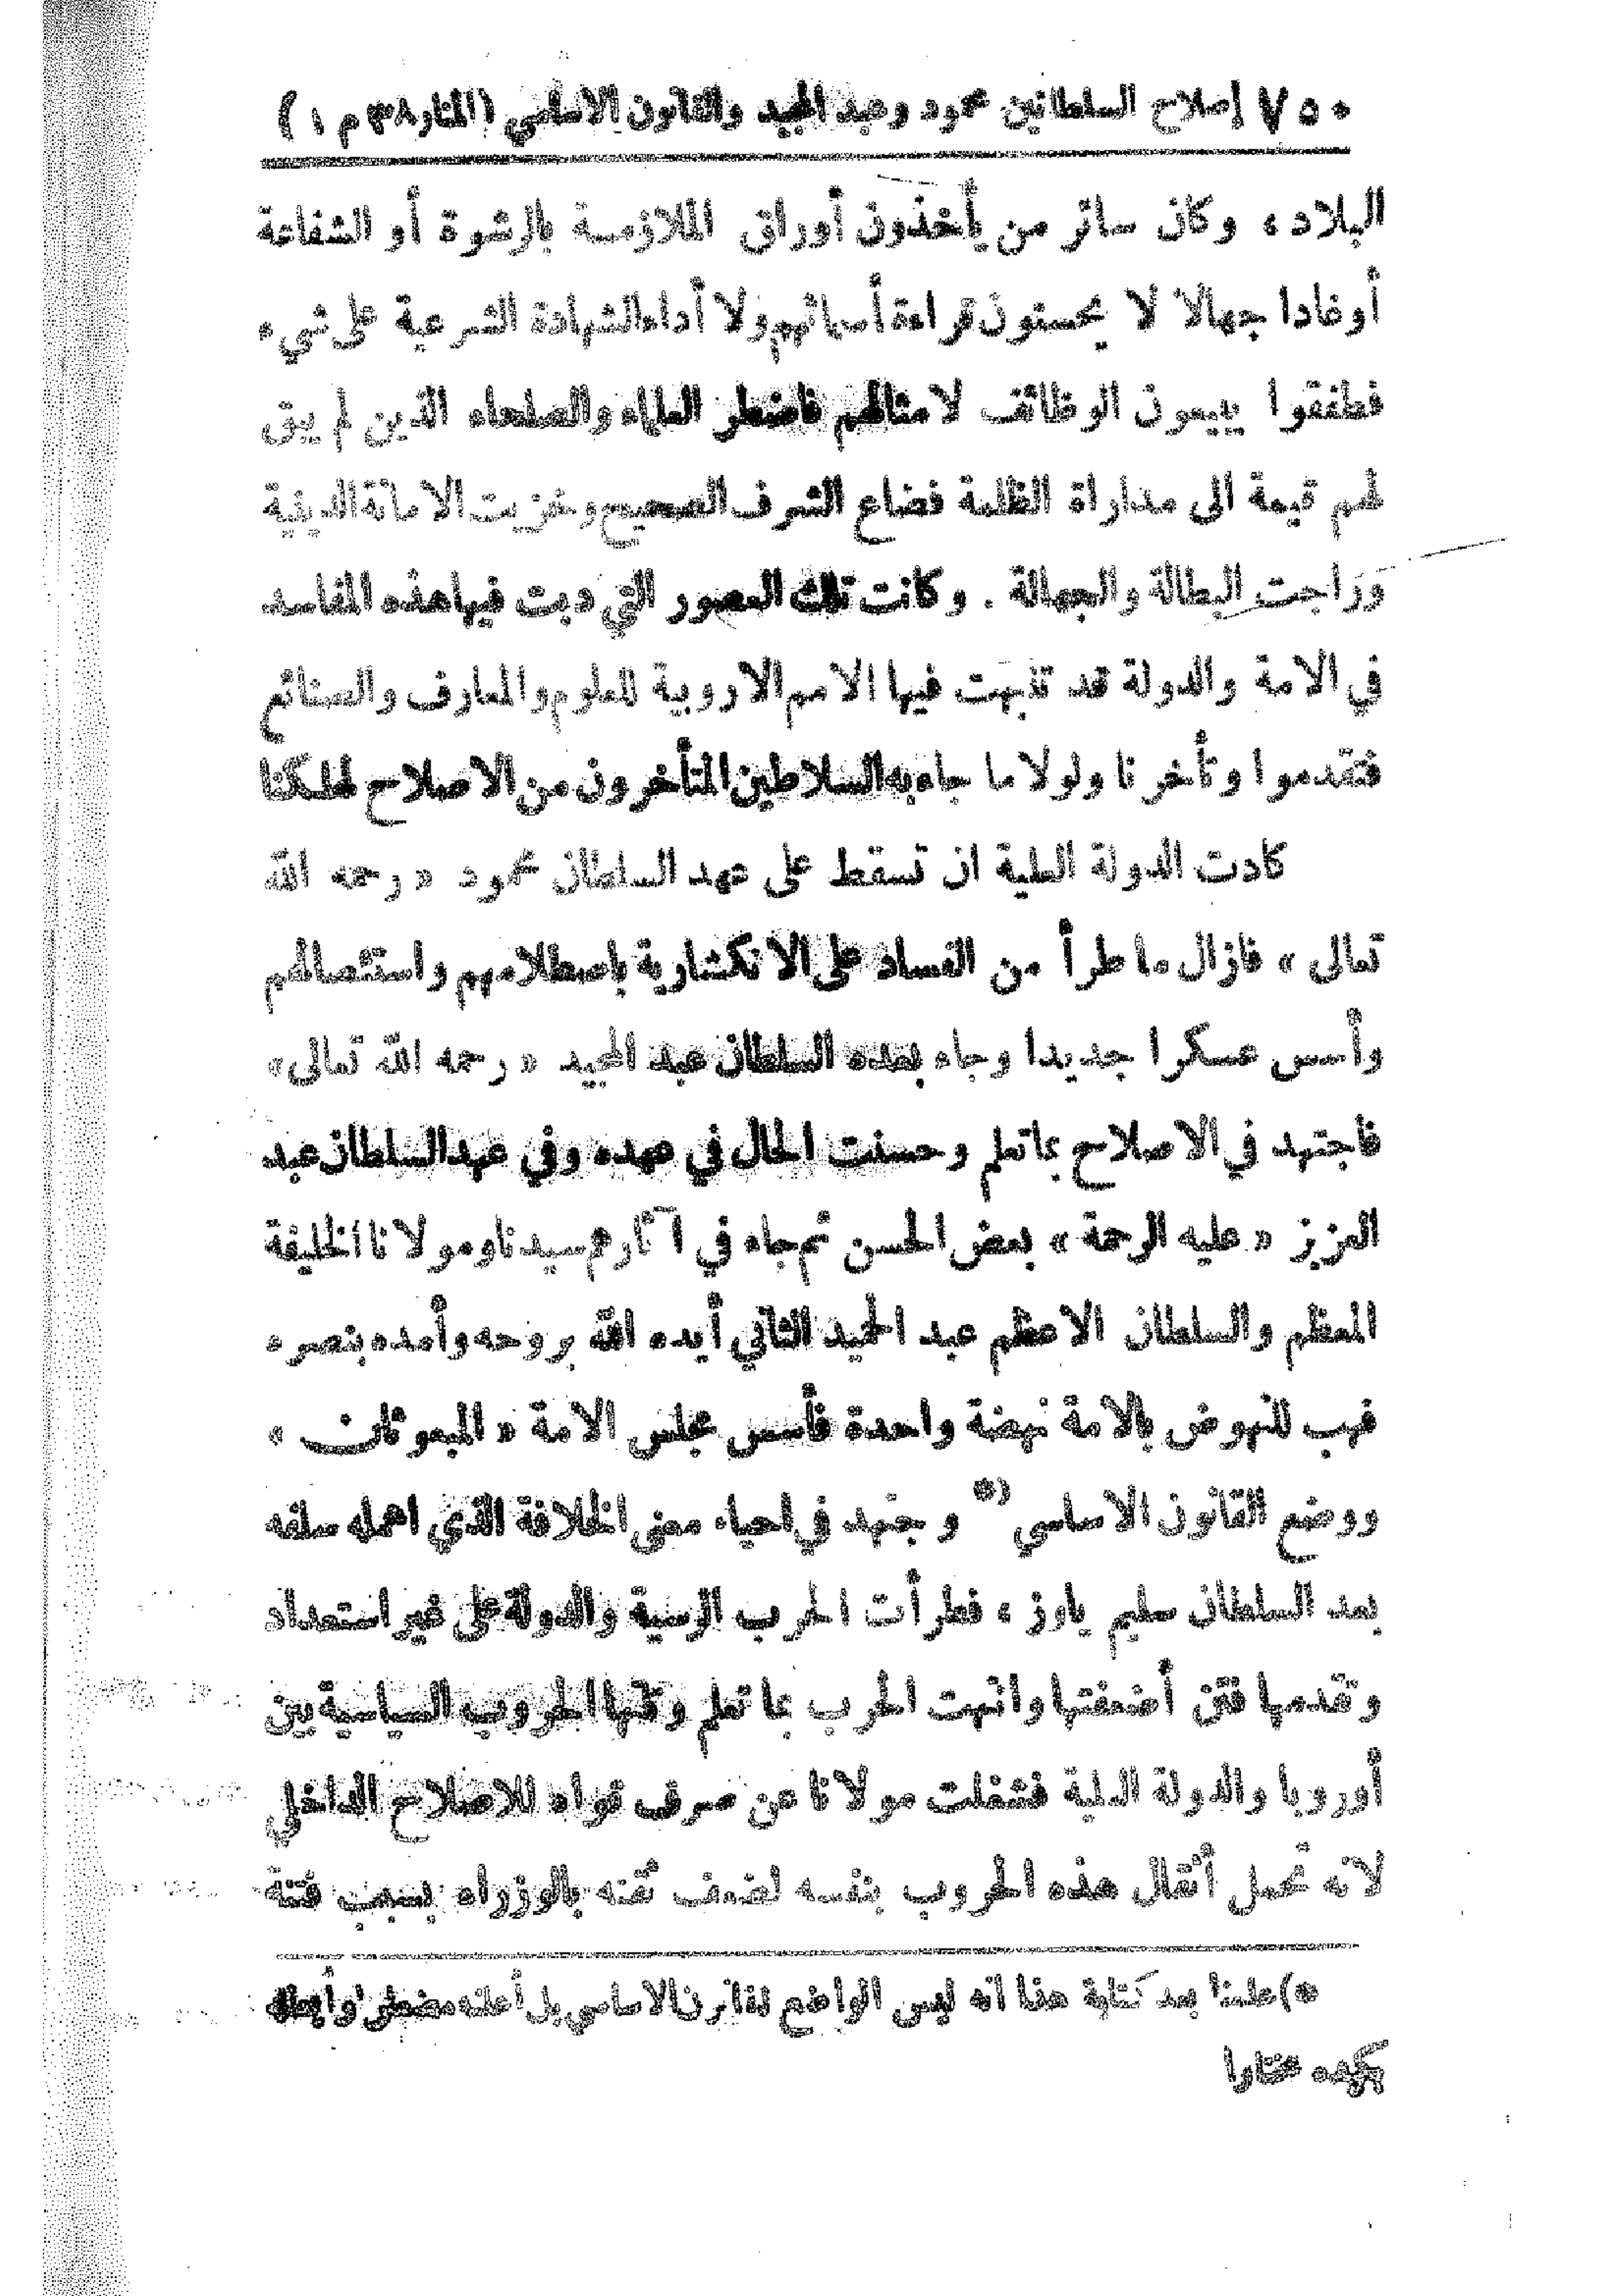 ٧٥٠ إصلاح السلطانين محمود وعبد المجيد والقانون الاساسي (المنار ٣٨ م ١)
البلاد، وكان سائر من يأخذون أوراق الملازمة بالرشوة أو الشفاعة
أوغادا جهالا لا يحسنون قراءة أسمائهم ولا أداء الشهادة الشرعية على شيء
فطفقوا يبيعون الوظائف لامثالهم فاضطر العلماء والصلحاء الذين لم يبق
لهم قيمة الى مداراة الظلمة فضاع الشرف الصحيح وخزيت الامانة الدينية
وراجت البطالة والجهالة . وكانت تلك العصور التي دبت فيها هذه المفاسد
في الامة والدولة قد تنبهت فيها الامم الاروبية للعلوم والمعارف والصنائع
فتقدموا وتأخرنا ولولا ما جاء به السلاطين المتأخرون من الاصلاح لهلكنا
كادت الدولة العلية ان تسقط على عهد السلطان محمود « رحمه الله
تعالى » فازال ما طرأ من الفساد على الانكشارية باصطلامهم واستئصالهم
وأسس عسكرا جديدا وجاء بعده السلطان عبد المجيد « رحمه الله تعالى»
فاجتهد في الاصلاح بما تعلم وحسنت الحال في عهده وفي عهد السلطان عبد
العزيز « عليه الرحمة » بعض الحسن ثم جاء في آثارهم سيدنا ومولانا الخليفة
المعظم والسلطان الاعظم عبد الحميد الثاني أيده الله بروحه وأمده بنصره
فهب للنهوض بالامة نهضة واحدة فأسس مجلس الامة « المبعوثان »
ووضع القانون الاساسي *) وجتهد في احياء معنى الخلافة الذي اهمله سلفه
بعد السلطان سليم ياوز ، فطرأت الحرب الروسية والدولة على غير استعداد
وتقدمها فتن أضعفتها وانتهت الحرب بما تعلم وتلتها الحروب السياسية بين
أوروبا والدولة العلية فشغلت مولانا عن صرف قواه للاصلاح الداخلي
لانه تحمل أثقال هذه الحروب بنفسه لضعف ثقته بالوزراء بسبب فتنة
*) علمنا بعد كتابة هذا انه ليس الواضع للقانون الاساسي بل أعلنه مضطرا وأبطله
بكيده مختارا